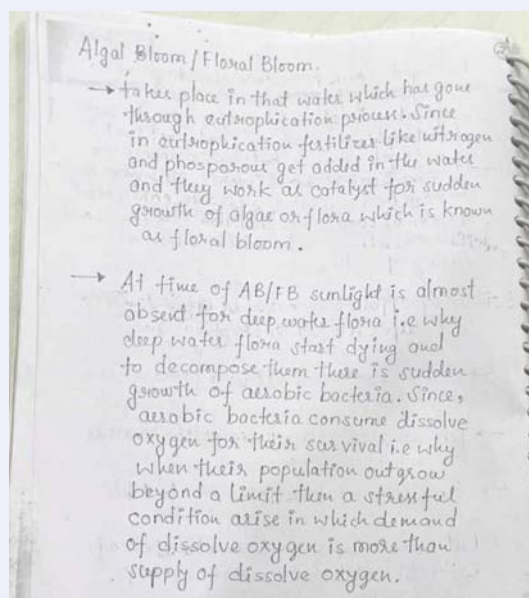 Algal Bloom / Floral Bloom.
→ takes place in that water which has gone
through eutrophication process. Since
in eutrophication fertilizer like nitrogen
and phosporous get added in the water
and they work as catalyst for sudden
growth of algae or flora which is known
as floral bloom.
→ At time of AB/FB sunlight is almost
absent for deep water flora i.e why
deep water flora start dying and
to decompose them there is sudden
growth of aerobic bacteria. Since,
aerobic bacteria consume dissolve
oxygen for their survival i.e why
when their population outgrow
beyond a limit then a stressful
condition arise in which demand
of dissolve oxygen is more than
supply of dissolve oxygen.